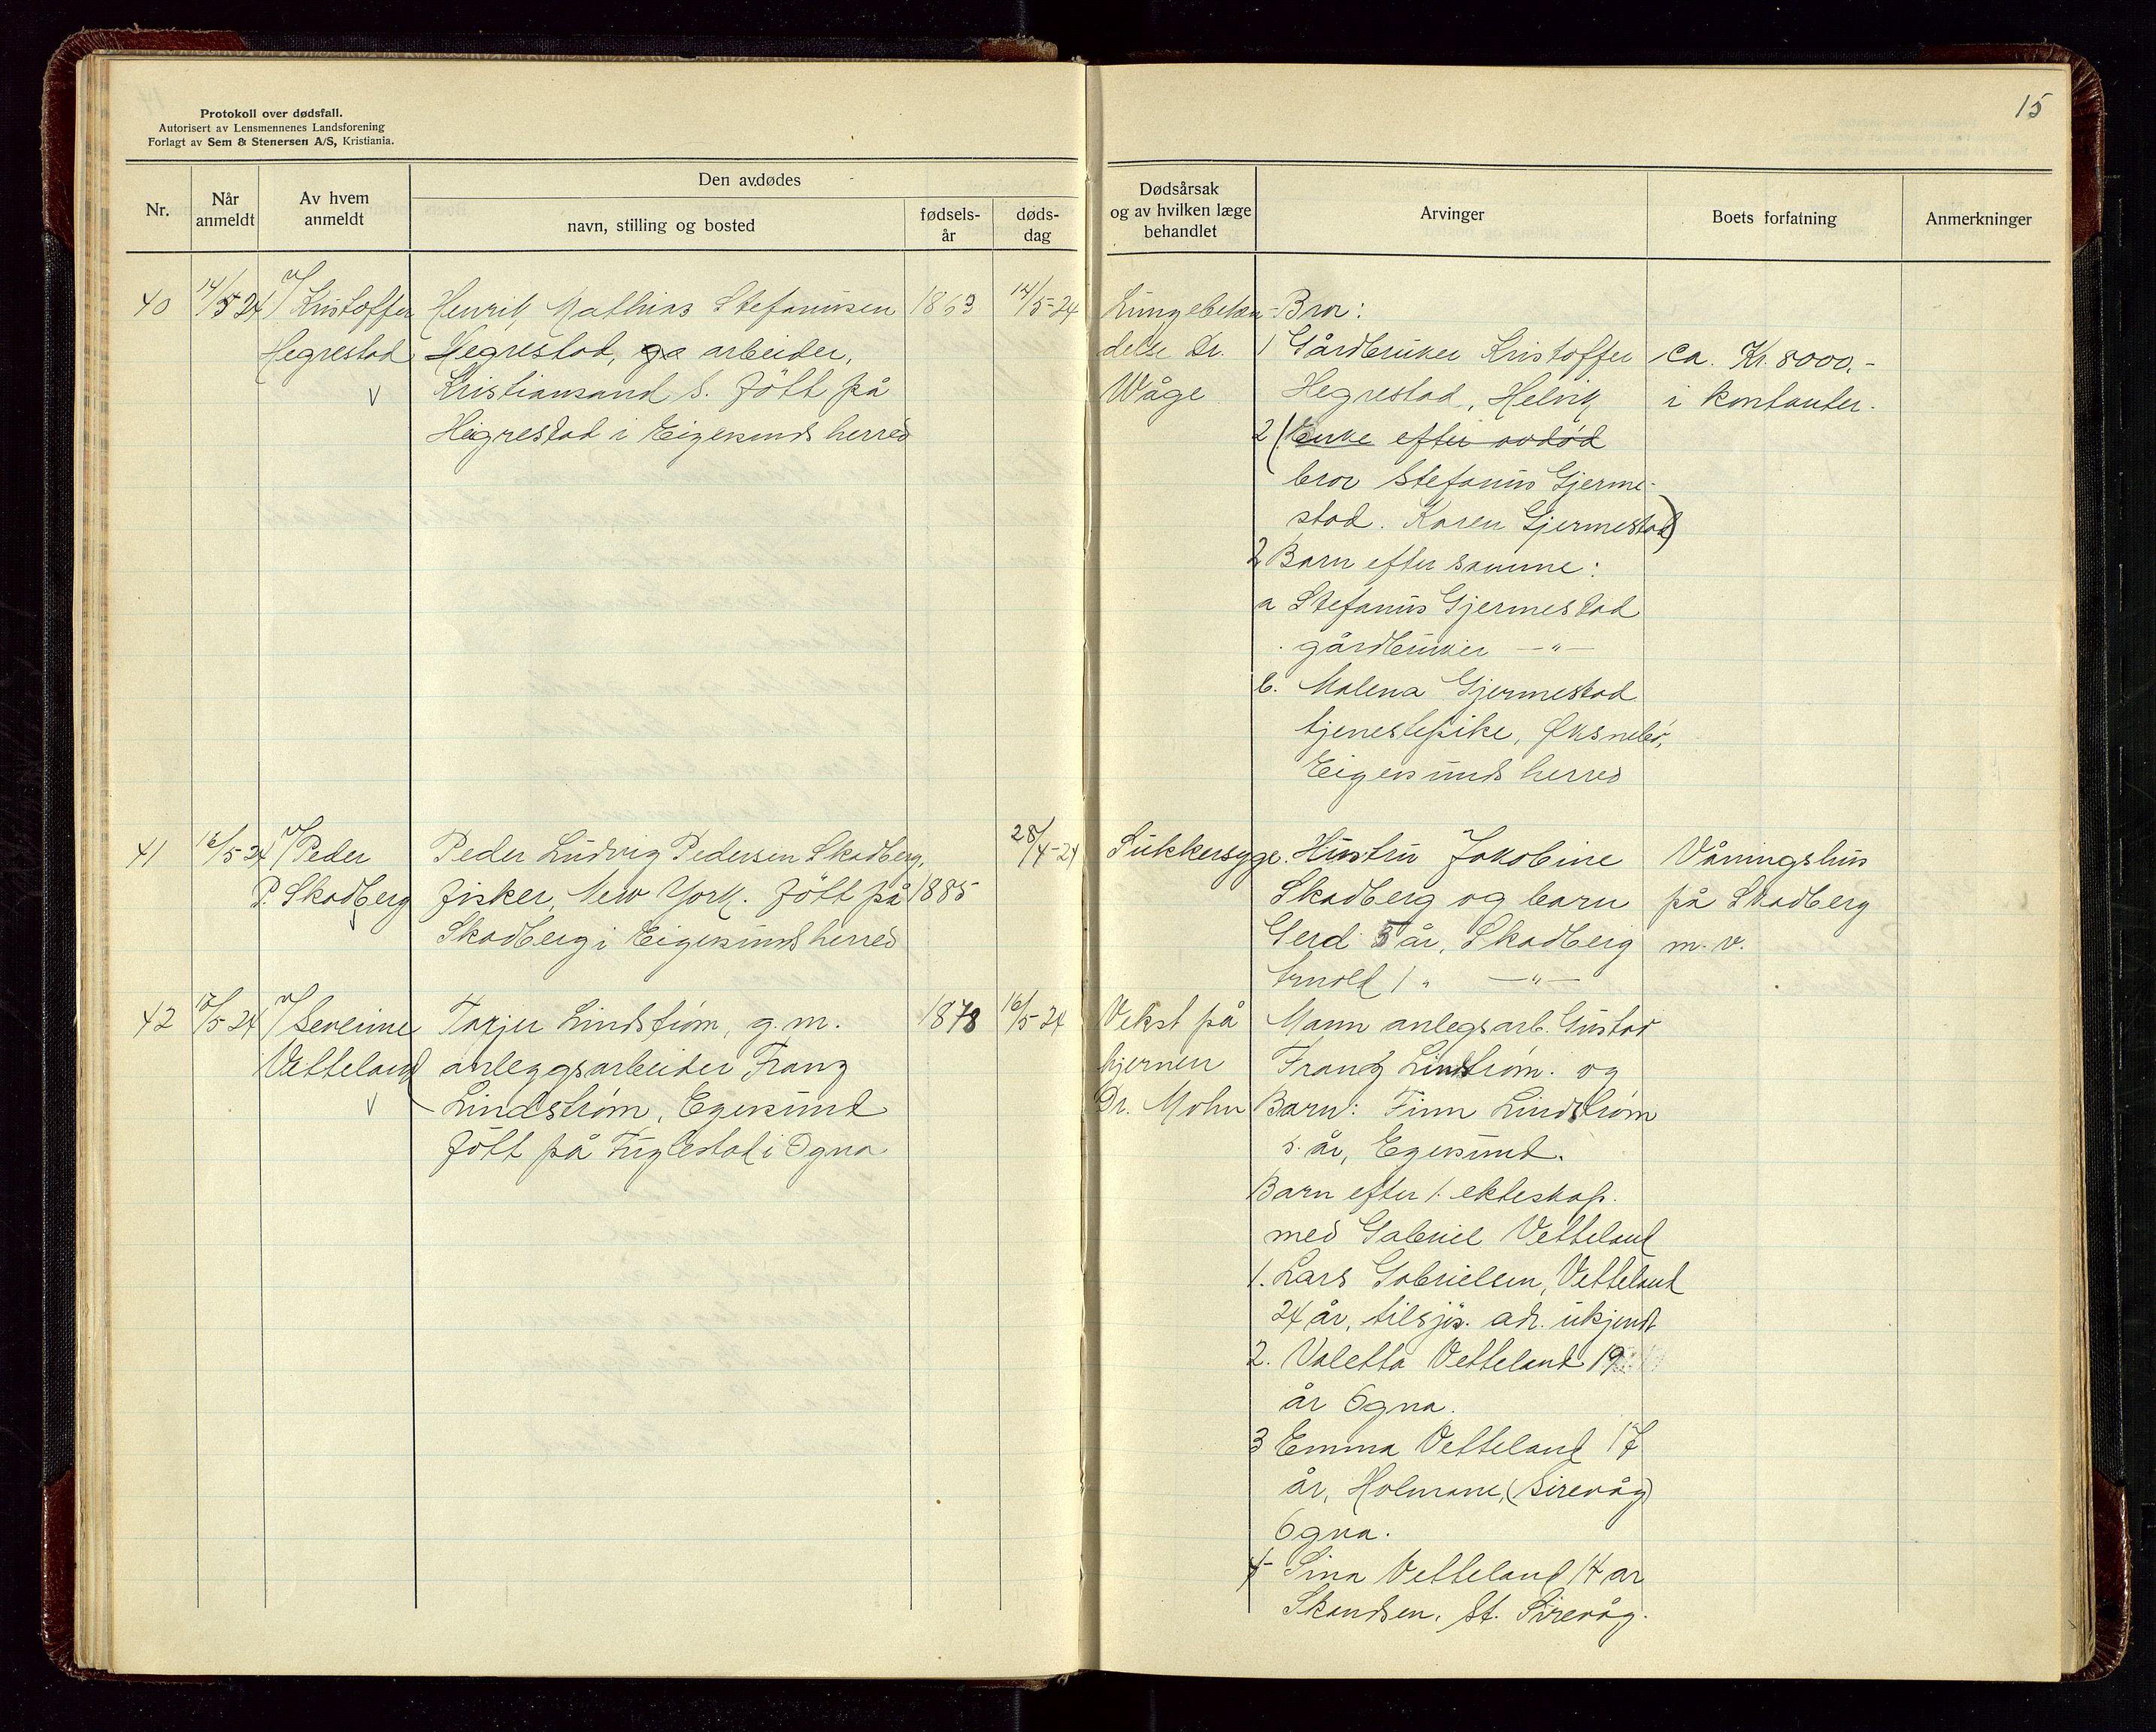 15
Protokoll over dødsfall.
Autorisert av Lensmennenes Landsforening
Forlagt av Sem & Stenersen A/S, Kristiania.
Nr.
Når anmeldt
Av hvem anmeldt
Den avdødes
navn, stilling og bosted
fødsels-år
døds-dag
Dødsårsak og av hvilken læge behandlet
Arvinger
Boets forfatning
Anmerkninger
40
14/5 24
v/ Kristoffer
Hegrestad
v
Henrik Mathias Stefanusen
Hegrestad, arbeider,
Kristiansand S. Född på
Hegrestad i Eigersunds herred
1863
14/5-24
Lungebeten-
delse Dr.
Wåge
Bror:
1 Gårdbruker Kristoffer
Hegrestad, Helvik
2 (Enke efter avdød
bror Stefanus Gjerme-
stad. Karen Gjermestad)
2 Barn efter samme:
a Stefanus Gjermestad
gårdbruker —"—
b. Malena Gjermestad
tjenestepike, Øksnebø,
Eigersunds herred
ca. Kr. 8000,-
i kontanter.
41
16/5-24
v/ Peder
P. Skadberg
v
Peder Ludvig Pedersen Skadberg,
fisker, New York. Född på
Skadberg i Eigersunds herred
1885
28/4-24
Sukkersyge.
Hustru Jakobine
Skadberg og barn
Gerd 3 år, Skadberg
Arnold 1 " —"—
Våningshus
på Skadberg
m. v.
42
17/5-24
v/ Severine
Vetteland
v
Tarjer Lindstrøm, g.m.
anleggsarbeider Franz
Lindstrøm, Egersund
Född på Fuglestad i Ogna
1878
16/5-24
Vekst på
hjernen
Dr. Mohn
Mann anlegsarb. Gustav
Frantz Lindstrøm. og
Barn: Finn Lindstrøm
år, Egersund.
Barn efter 1. ekteskap.
med Gabriel Vetteland
1. Lars Gabrielsen, Vetteland
24 år, tilsjøs. adr. ukjendt
2. Valetta Vetteland 19
år Ogna.
3 Emma Vetteland 17
år, Holmane, (Sirevåg)
Ogna.
4 Sina Vetteland 14 ar
Skandsen, St. Sirevåg.